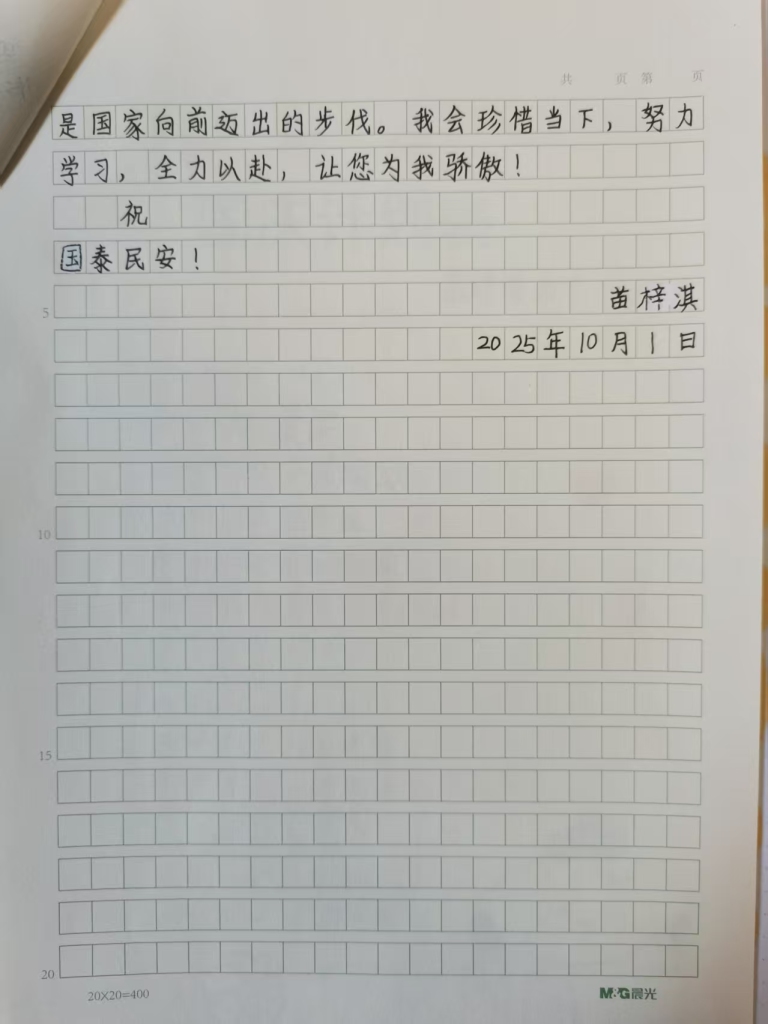 共 页 第 页
是国家向前迈出的步伐。我会珍惜当下，努力
学习，全力以赴，让您为我骄傲！
祝
国泰民安！
苗梓淇
5
2025年10月1日
10
15
20
20×20=400
M&G晨光